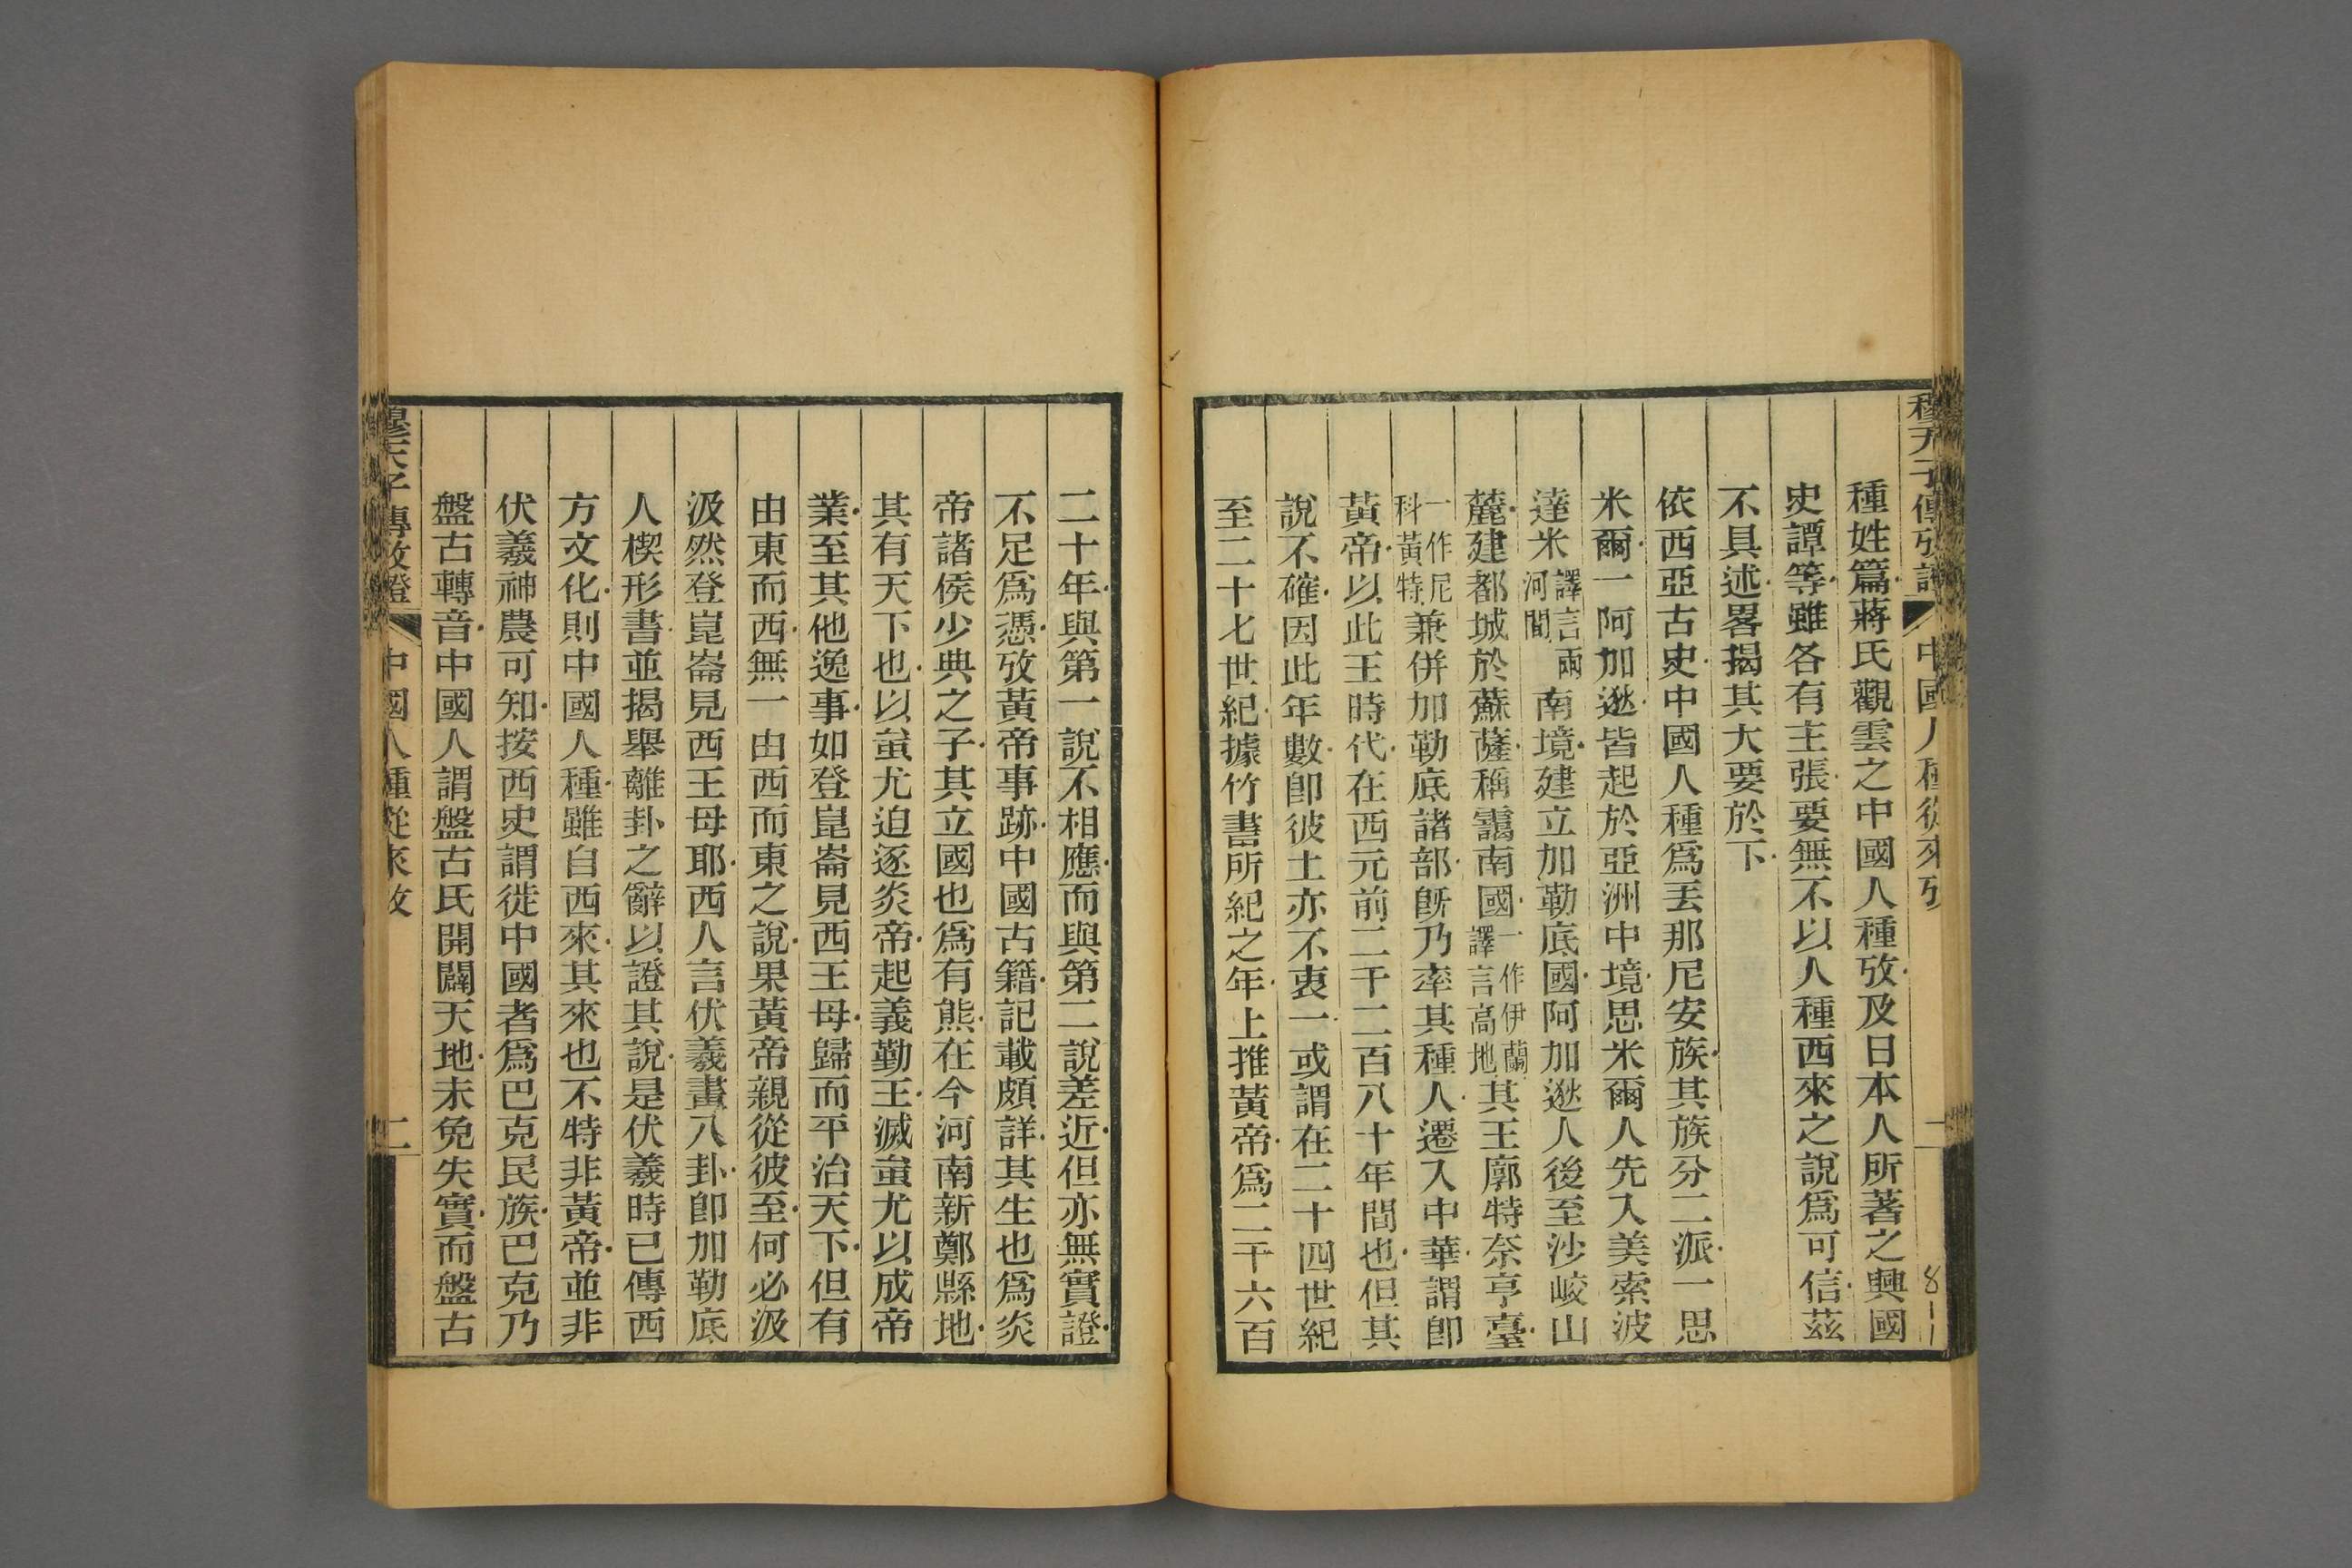 穆天子傳攷證 中國人種從來攷 一
811
種姓篇蔣氏觀雲之中國人種攷及日本人所著之興國
史譚等雖各有主張要無不以人種西來之說爲可信茲
不具述畧揭其大要於下
依西亞古史中國人種爲丟那尼安族其族分二派一思
米爾一阿加逖皆起於亞洲中境思米爾人先入美索波
達米譯言兩河間南境建立加勒底國阿加逖人後至沙峧山
麓建都城於蘇薩稱靄南國一作伊蘭譯言高地其王廓特奈亨臺
一作尼科黃特兼併加勒底諸部旣乃率其種人遷入中華謂卽
黃帝以此王時代在西元前二千二百八十年間也但其
說不確因此年數卽彼土亦不衷一或謂在二十四世紀
至二十七世紀據竹書所紀之年上推黃帝爲二千六百
二十年與第一說不相應而與第二說差近但亦無實證
不足爲憑攷黃帝事跡中國古籍記載頗詳其生也爲炎
帝諸侯少典之子其立國也爲有熊在今河南新鄭縣地
其有天下也以蚩尤迫逐炎帝起義勤王滅蚩尤以成帝
業至其他逸事如登崑崙見西王母歸而平治天下但有
由東而西無一由西而東之說果黃帝親從彼至何必汲
汲然登崑崙見西王母耶西人言伏羲畫八卦卽加勒底
人楔形書並揭舉離卦之辭以證其說是伏羲時已傳西
方文化則中國人種雖自西來其來也不特非黃帝並非
伏羲神農可知按西史謂徙中國者爲巴克民族巴克乃
盤古轉音中國人謂盤古氏開闢天地未免失實而盤古
穆天子傳攷證 中國人種從來攷 二